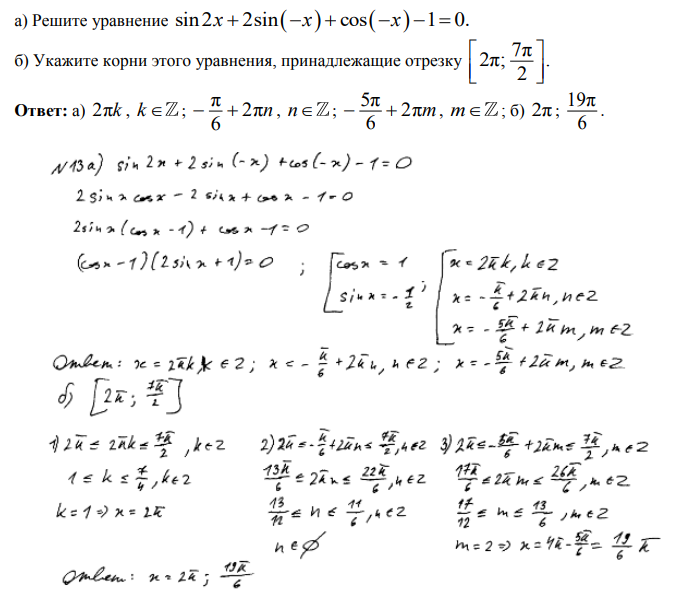 а) Решите уравнение sin2x + 2sin(−x) + cos(−x) − 1 = 0.
б) Укажите корни этого уравнения, принадлежащие отрезку [2π; 7π/2].
Ответ: а) 2πk, k ∈ ℤ; −π/6 + 2πn, n ∈ ℤ; −5π/6 + 2πm, m ∈ ℤ; б) 2π; 19π/6.
N13a) sin 2x + 2 sin(−x) + cos(−x) − 1 = 0
2 sin x cos x − 2 sin x + cos x − 1 = 0
2 sin x (cos x − 1) + cos x − 1 = 0
(cos x − 1)(2 sin x + 1) = 0 ; [cos x = 1 ; [x = 2πk, k ∈ Z
sin x = −1/2 x = −π/6 + 2πn, n ∈ Z
x = −5π/6 + 2πm, m ∈ Z
Ответ: x = 2πk, k ∈ Z; x = −π/6 + 2πn, n ∈ Z; x = −5π/6 + 2πm, m ∈ Z
б) [2π; 7π/2]
1) 2π ≤ 2πk ≤ 7π/2, k ∈ Z 2) 2π ≤ −π/6 + 2πn ≤ 7π/2, n ∈ Z 3) 2π ≤ −5π/6 + 2πm ≤ 7π/2, m ∈ Z
1 ≤ k ≤ 7/4, k ∈ Z 13π/6 ≤ 2πn ≤ 22π/6, n ∈ Z 17π/6 ≤ 2πm ≤ 26π/6, m ∈ Z
k = 1 ⇒ x = 2π 13/12 ≤ n ≤ 11/6, n ∈ Z 17/12 ≤ m ≤ 13/6, m ∈ Z
n ∈ ∅ m = 2 ⇒ x = 4π − 5π/6 = 19/6 π
Ответ: x = 2π; 19π/6